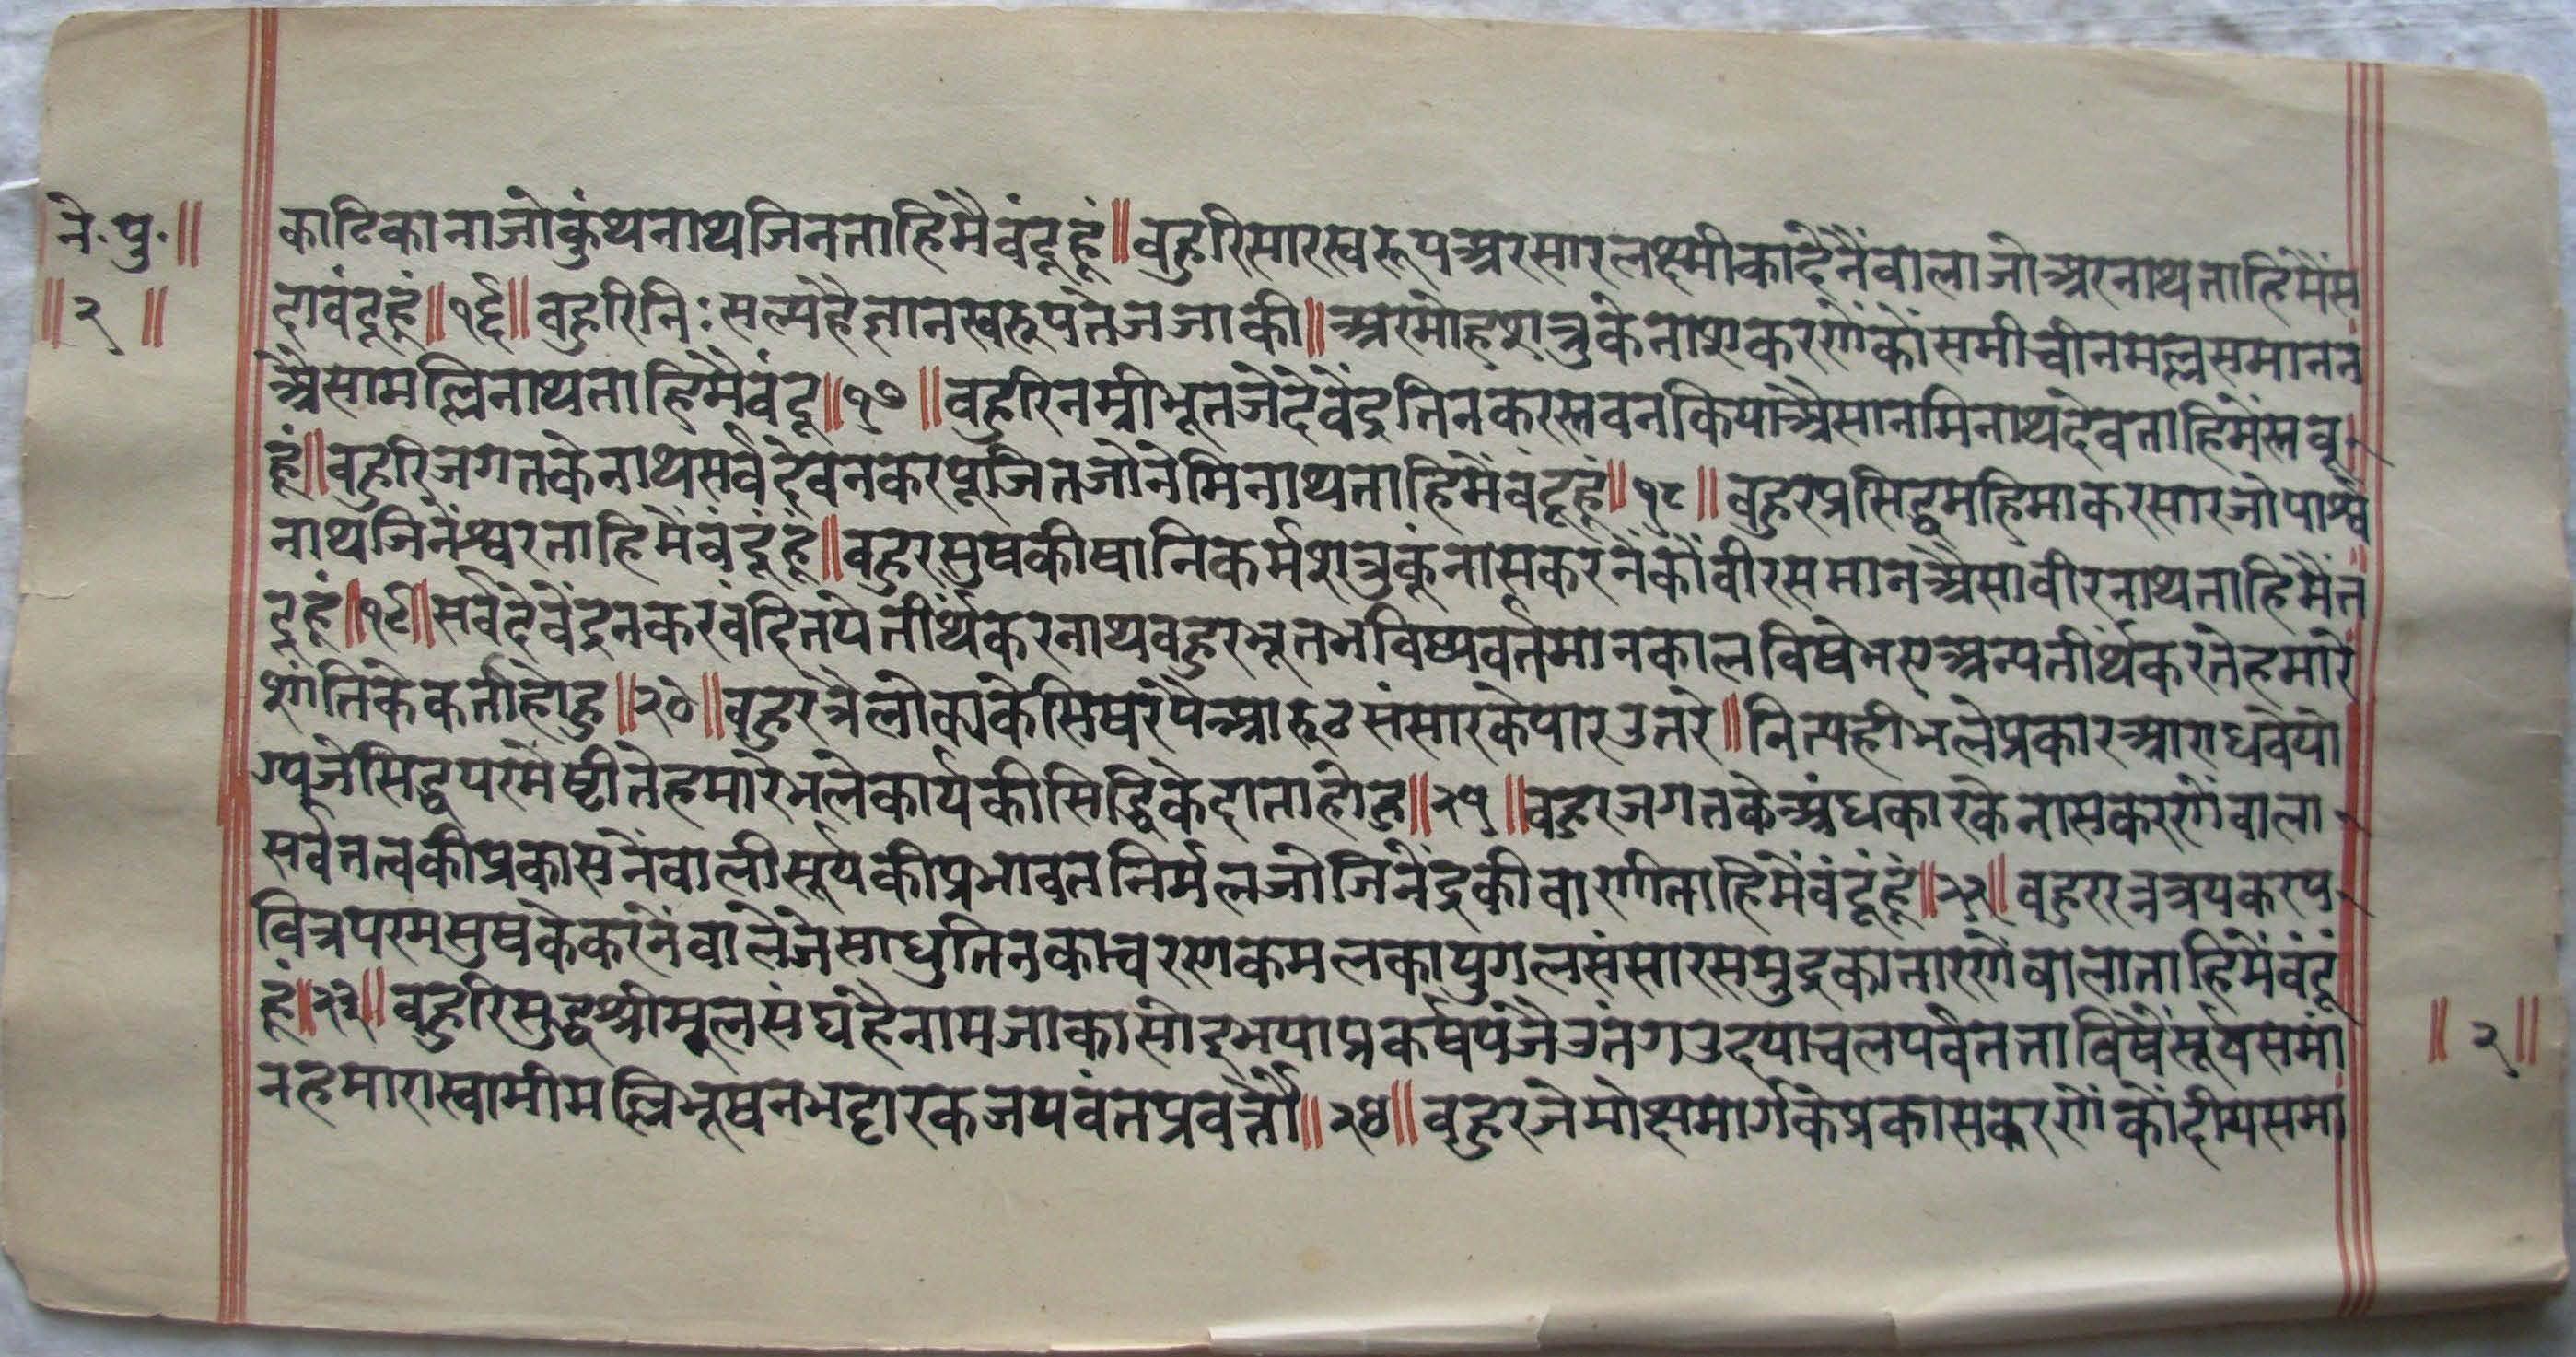 ने.पु.॥
॥२॥
काटिकानाजोकुंथनाथजिनताहिमैवंदूहूं॥वहुरिसारस्वरूपअरसारलक्ष्मीकादेनैंवालाजोअरनाथताहिमैंस
दावंदूहूं॥१६॥वहुरिनिःसल्यहैज्ञानस्वरूपतेजजाकी॥अरमोहशत्रुकेनाशकरणेंकोंसमीचीनमल्लसमाननं
अैसामल्लिनाथताहिमैवंदू॥१७॥वहुरिनम्रीभूतजेदेवेंद्रतिनकरस्तवनकियाअैसानमिनाथदेवताहिमेंस्तवू
हूं॥वहुरिजगतकेनाथसर्वदेवनकरपूजितजोनेमिनाथताहिमैंवंदूहूं॥१८॥वहुरप्रसिद्धमहिमाकरसारजोपार्श्व
नाथजिनेंश्वरताहिमेंवंदूंहूं॥वहुरसुषकीषानिकर्मशत्रुकूंनासकरनेंकोंवीरसमानअैसावीरनाथताहिमैंन
दूहूं॥१९॥सर्वदेवेंद्रनकरवंदितयेतीर्थंकरनाथवहुरभूतभविष्यवर्तमानकालविषेभएअन्यतीर्थंकरतेहमारे
शांतिकेकर्ताहोहु॥२०॥वहुरत्रैलोक्यकेसिषरपैआरूढसंसारकेपारउतरे॥नित्यहीभलेप्रकारआराधवेयो
ग्यजेसिद्धपरमेष्टीतेहमारेभलेकार्यकीसिद्धिकेदाताहोहु॥२१॥वहुरजगतकेअंधकारकेनासकरणेंवाला
सर्वतत्वकीप्रकासनैंवालीसूर्यकीप्रभावतनिर्मलजोजिनेंद्रकीवाणीताहिमैंवंदूंहूं॥२२॥वहुररत्नत्रयकरप
वित्रपरमसुषकेकरनेंवालेजेसाधुतिनकाचरणकमलकायुगलसंसारसमुद्रकातारणेंवालाताहिमैंवंदूं
हूं॥२३॥वहुरिसुद्धश्रीमूलसंघहैनामजाकासोदूभयाप्रकर्षपंजैउतंगउदयाचलपर्वतताविषैंसूर्यसमां
नहमारास्वामीमल्लिभूषनभट्टारकजयवंतप्रवर्त्तौ॥२४॥वहुरजेमोक्षमार्गकेप्रकासकरणेंकोंदीयसमां
॥२॥